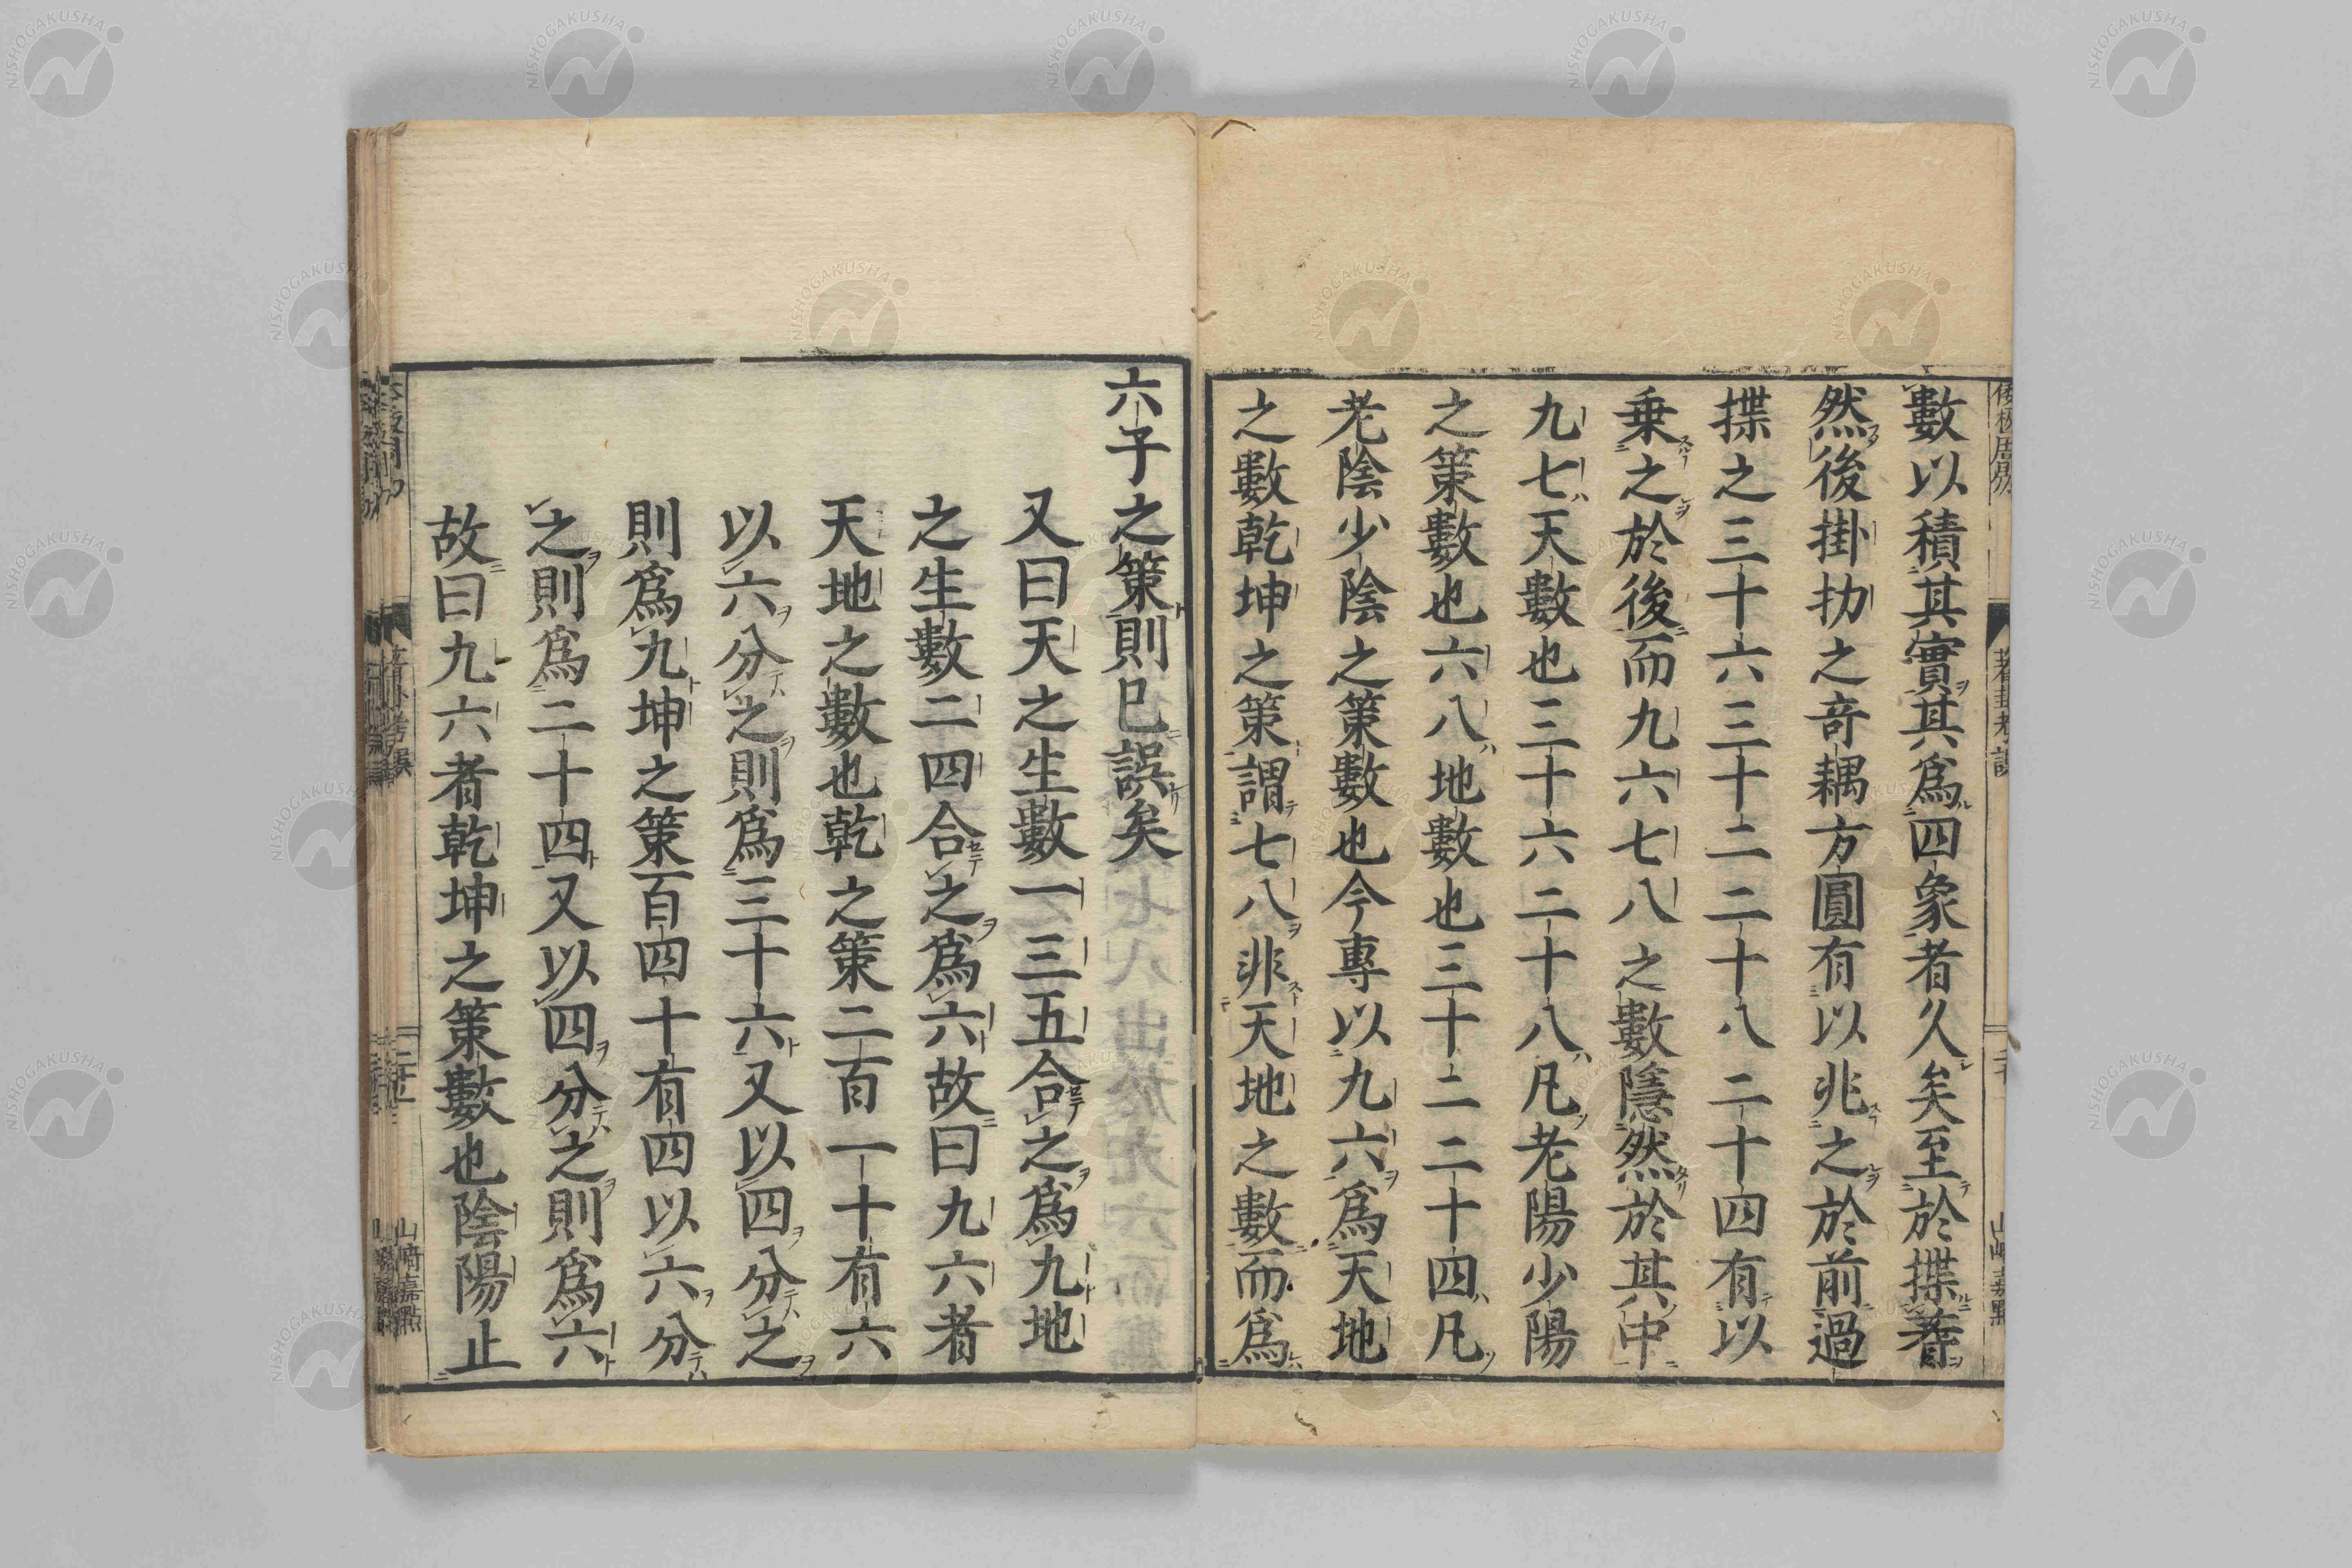 數以積其實其爲四象者久矣至於揲蓍
然後掛扐之奇耦方圓有以兆之於前過
揲之三十六三十二二十八二十四有以
乗之於後而九六七八之數隱然於其中
九七天數也三十六二十八凡老陽少陽
之策數也六八地數也三十二二十四凡
老陰少陰之策數也今專以九六爲天地
之數乾坤之策謂七八非天地之數而爲
六子之策則已誤矣
又曰天之生數一三五合之爲九地
之生數二四合之爲六故曰九六者
天地之數也乾之策二百一十有六
以六分之則爲三十六又以四分之
則爲九坤之策百四十有四以六分
之則爲二十四又以四分之則爲六
故曰九六者乾坤之策數也陰陽止
山嵜嘉點
NISHOGAKUSHA